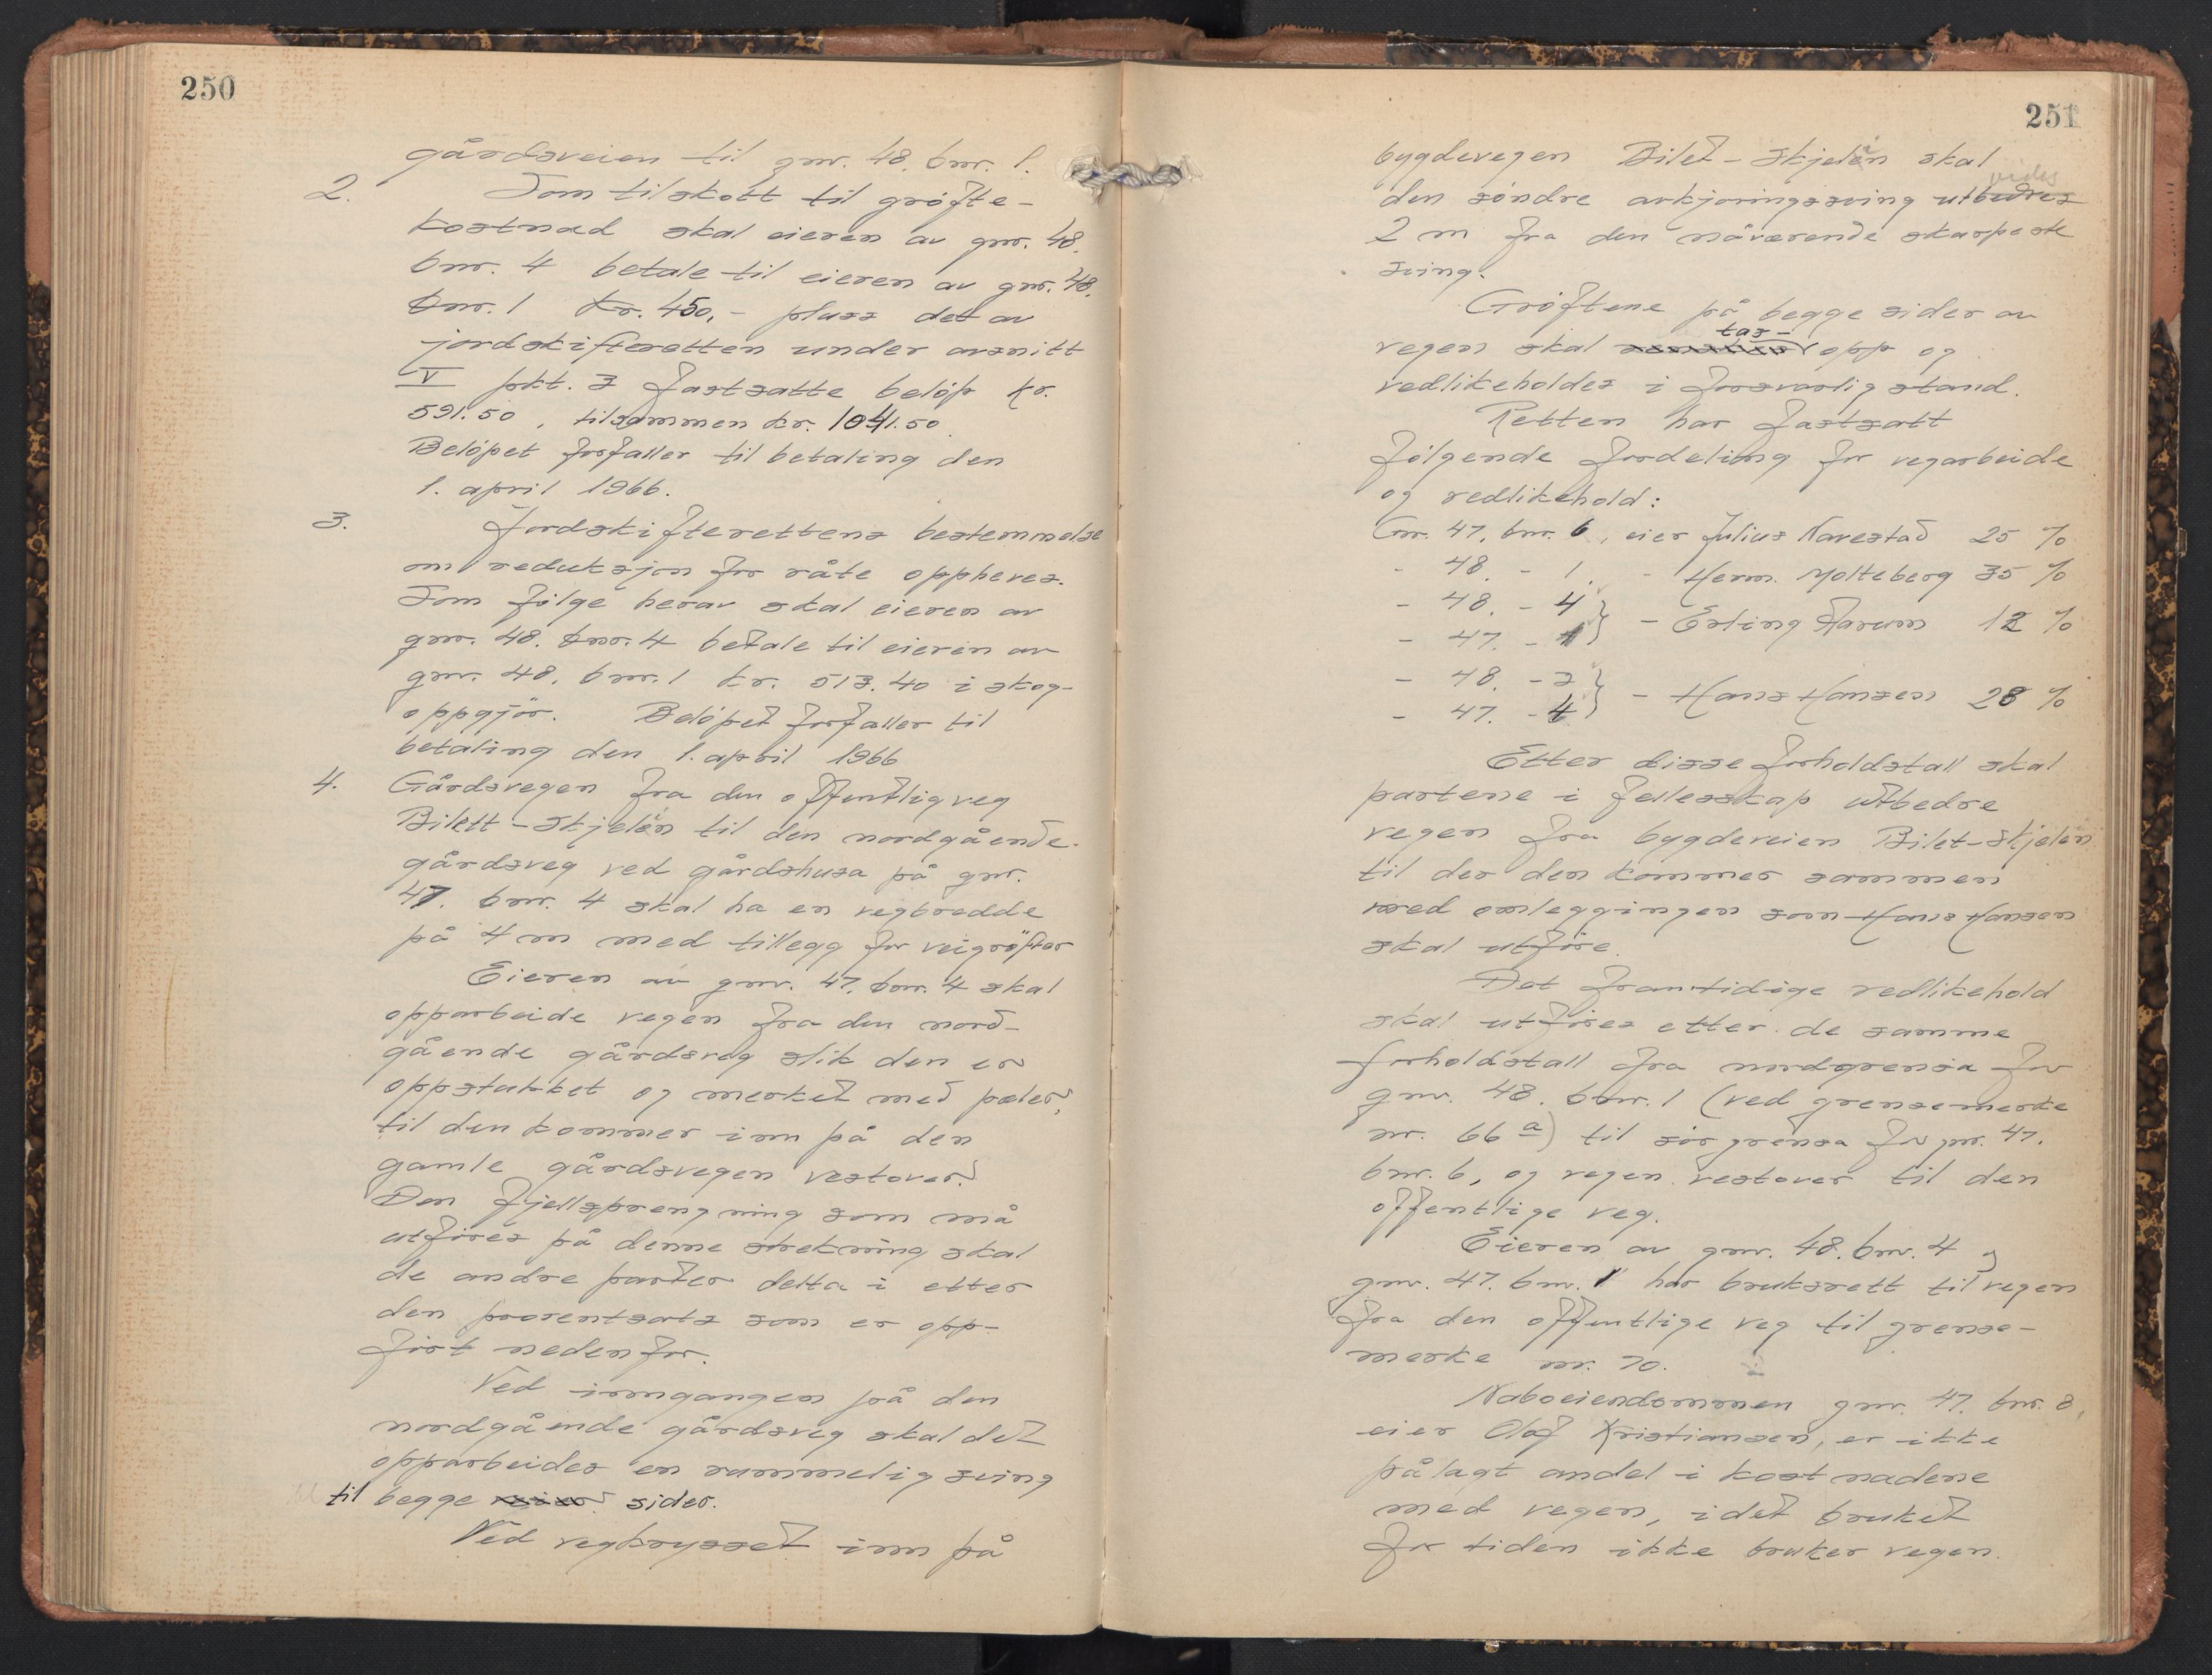 250
gårdsveien til gnr. 48, bnr. 1.
2. Som tilskott til grøfte-
kostnad skal eieren av gnr. 48.
bnr. 4 betale til eieren av gnr. 48.
bnr. 1 kr. 450,- pluss det av
jordskifteretten under avsnitt
V pkt. 3 fastsatte beløp kr.
591.50, tilsammen kr. 1041.50.
Beløpet forfaller til betaling den
1. april 1966.
3. Jordskifterettens bestemmelse
om reduksjon for råte oppheves.
Som følge herav skal eieren av
gnr. 48. bnr. 4 betale til eieren av
gnr. 48, bnr. 1 kr. 513.40 i skog-
oppgjør. Beløpet forfaller til
betaling den 1. april 1966
4. Gårdsvegen fra den offentlig veg
Bilett-Skjelin til den nordgående
gårdsveg ved gårdshusa på gnr.
47. bnr. 4 skal ha en vegbredde
på 4 m med tillegg for veigrøfter
Eieren av gnr. 47. bnr. 4 skal
opparbeide vegen fra den nord-
gående gårdsveg slik den er
oppstukket og merket med pæler,
til den kommer inn på den
gamle gårdsvegen vestover.
Den fjellsprengning som må
utføres på denne strekning skal
de andre parter delta i etter
den prosentsats som er opp-
ført nedenfor.
Ved inngangen på den
nordgående gårdsveg skal det
opparbeides en rummelig sving
til begge sider.
Ved vegkrysset inn på
251
bygdevegen Bilet-Skjelin skal
den søndre avkjøringssving utvides
2 m fra den nåværende skarpeste
sving.
Grøftene på begge sider av
vegen skal tas opp og
vedlikeholdes i forsvarlig stand.
Retten har fastsatt
følgende fordeling for vegarbeide
og vedlikehold:
Gnr. 47, bnr. 6, eier Julius Navestad 25 %
- 48. - 1. - Herm. Molteberg 35 %
- 48. - 4 } - Erling Harum 12 %
- 47. - 1
- 48. - 3 } - Hans Hansen 28 %
- 47. - 4
Etter disse forholdstall skal
partene i fellesskap utbedre
vegen fra bygdeveien Bilet-Skjelin
til der den kommer sammen
med omleggingen som Hans Hansen
skal utføre.
Det framtidige vedlikehold
skal utføres etter de samme
forholdstall fra nordgrensa for
gnr. 48. bnr. 1 (ved grensemerke
nr. 66 a) til sørgrensa for gnr. 47.
bnr. 6, og vegen vestover til den
offentlige veg.
Eieren av gnr. 48. bnr. 4 og
gnr. 47. bnr. 1 har bruksrett til vegen
fra den offentlige veg til grense-
merke nr. 70.
Naboeiendommen gnr. 47. bnr. 8,
eier Olaf Kristiansen, er ikke
pålagt andel i kostnadene
med vegen, idet bruket
for tiden ikke bruker vegen.